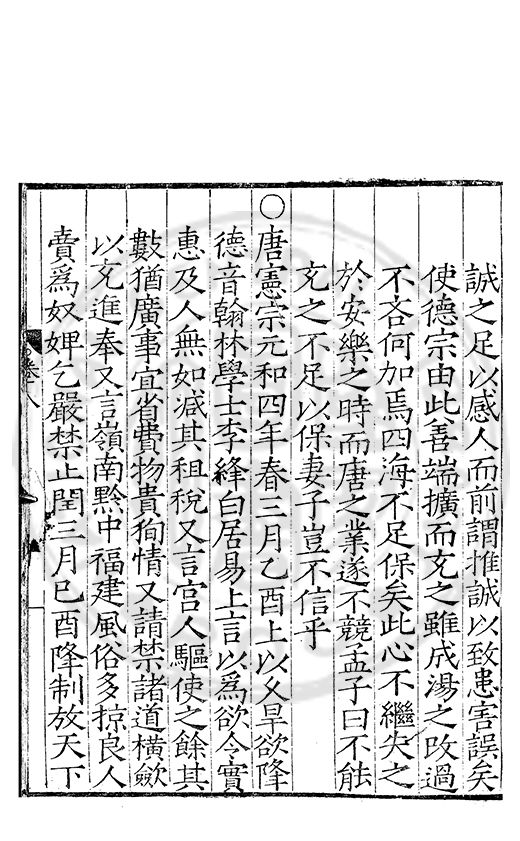 誠之足以感人而前謂推誠以致患害誤矣
使德宗由此善端擴而充之雖成湯之改過
不吝何加焉四海不足保矣此心不繼失之
於安樂之時而唐之業遂不競孟子曰不能
充之不足以保妻子豈不信乎
○唐憲宗元和四年春三月乙酉上以久旱欲降
德音翰林學士李絳白居易上言以爲欲令實
惠及人無如減其租稅又言宮人驅使之餘其
數猶廣事宜省費物貴徇情又請禁諸道橫歛
以充進奉又言嶺南黔中福建風俗多掠良人
賣爲奴婢乞嚴禁止閏三月己酉降制放天下
卷八